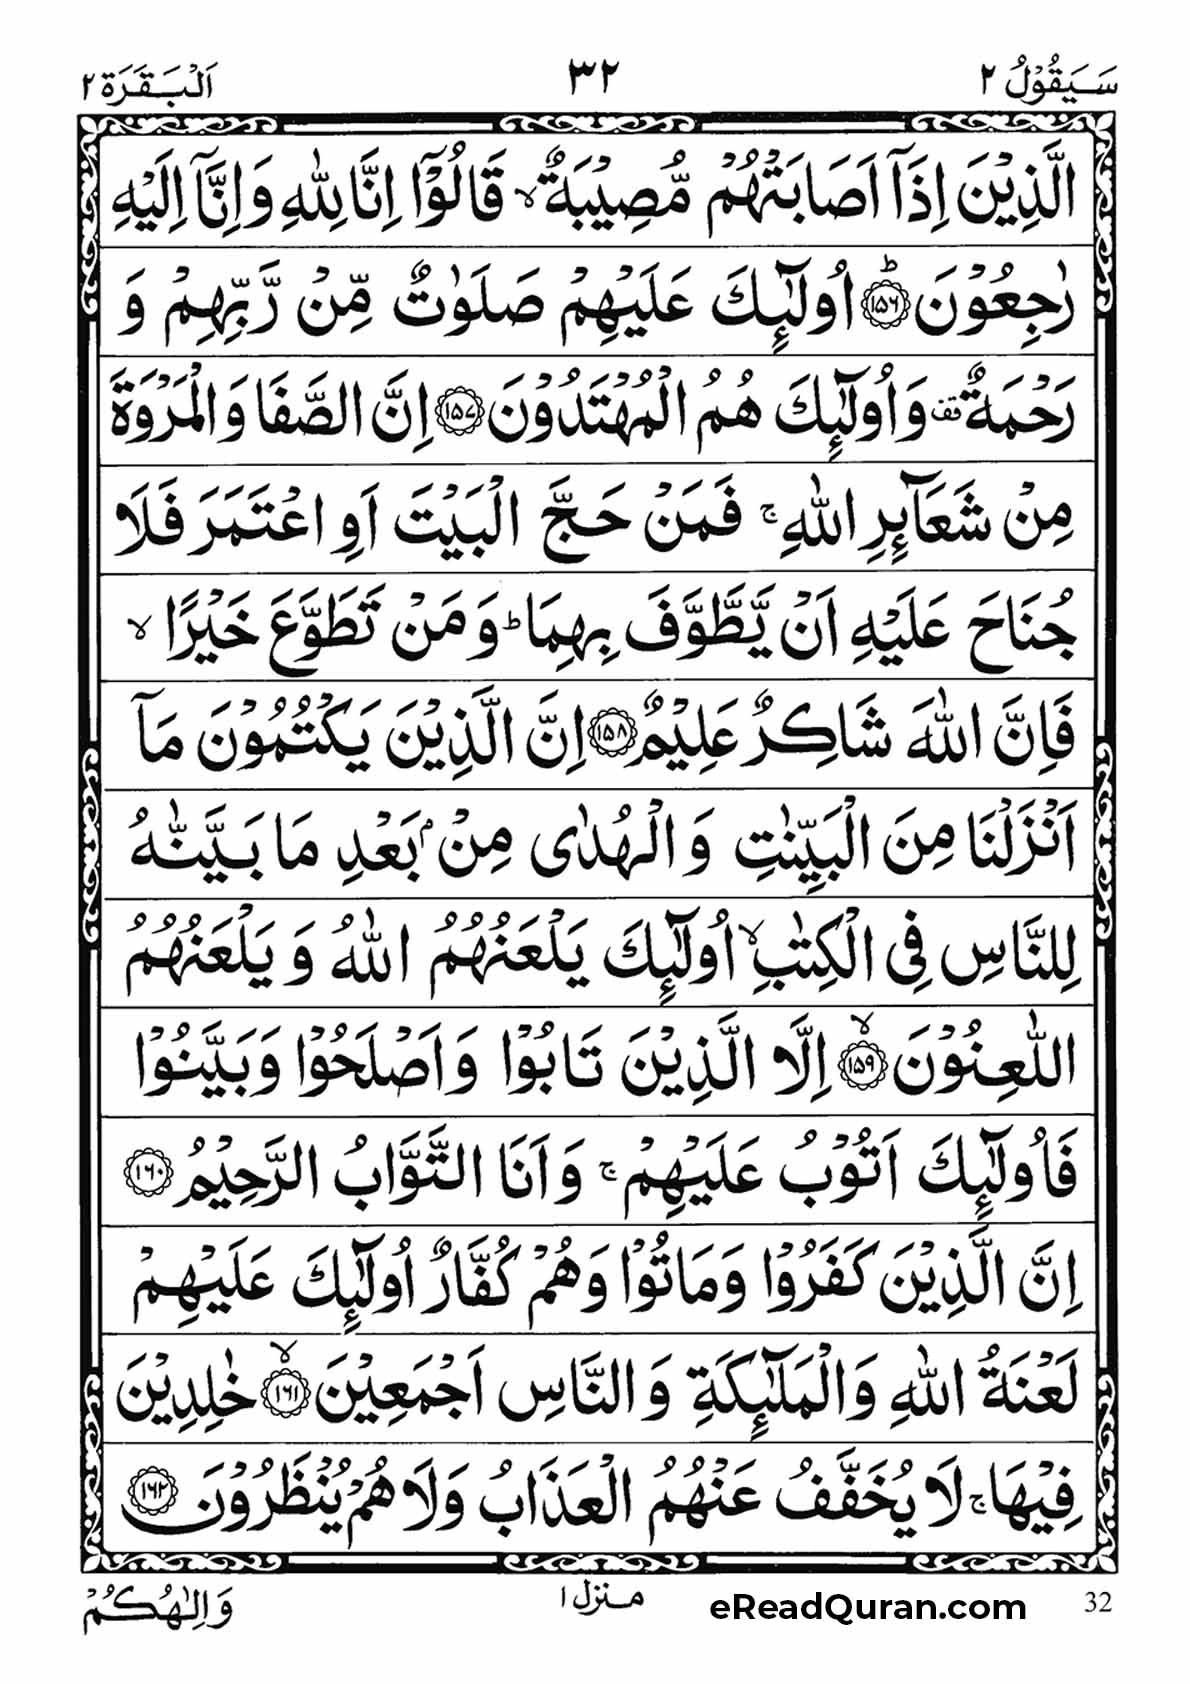 سَيَقُوۡلُ ٢ ٣٢ اَلۡبَقَرَة ٢
الَّذِيۡنَ اِذَآ اَصَابَتۡهُمۡ مُّصِيۡبَةٌ ۙ قَالُوۡٓا اِنَّا لِلّٰهِ وَاِنَّآ اِلَيۡهِ
رٰجِعُوۡنَ ؕ ﴿۱۵۶﴾ اُولٰٓئِكَ عَلَيۡهِمۡ صَلَوٰتٌ مِّنۡ رَّبِّهِمۡ وَ
رَحۡمَةٌ قف وَاُولٰٓئِكَ هُمُ الۡمُهۡتَدُوۡنَ ﴿۱۵۷﴾ اِنَّ الصَّفَا وَالۡمَرۡوَةَ
مِنۡ شَعَآئِرِ اللّٰهِ ۚ فَمَنۡ حَجَّ الۡبَيۡتَ اَوِ اعۡتَمَرَ فَلَا
جُنَاحَ عَلَيۡهِ اَنۡ يَّطَّوَّفَ بِهِمَا ؕ وَمَنۡ تَطَوَّعَ خَيۡرًا ۙ
فَاِنَّ اللّٰهَ شَاكِرٌ عَلِيۡمٌ ﴿۱۵۸﴾ اِنَّ الَّذِيۡنَ يَكۡتُمُوۡنَ مَآ
اَنۡزَلۡنَا مِنَ الۡبَيِّنٰتِ وَالۡهُدٰى مِنۡۢ بَعۡدِ مَا بَيَّنّٰهُ
لِلنَّاسِ فِى الۡكِتٰبِ ۙ اُولٰٓئِكَ يَلۡعَنُهُمُ اللّٰهُ وَيَلۡعَنُهُمُ
اللّٰعِنُوۡنَ ۙ ﴿۱۵۹﴾ اِلَّا الَّذِيۡنَ تَابُوۡا وَاَصۡلَحُوۡا وَبَيَّنُوۡا
فَاُولٰٓئِكَ اَتُوۡبُ عَلَيۡهِمۡ ۚ وَاَنَا التَّوَّابُ الرَّحِيۡمُ ﴿۱۶۰﴾
اِنَّ الَّذِيۡنَ كَفَرُوۡا وَمَاتُوۡا وَهُمۡ كُفَّارٌ اُولٰٓئِكَ عَلَيۡهِمۡ
لَعۡنَةُ اللّٰهِ وَالۡمَلٰٓئِكَةِ وَالنَّاسِ اَجۡمَعِيۡنَ ۙ ﴿۱۶۱﴾ خٰلِدِيۡنَ
فِيۡهَا ۚ لَا يُخَفَّفُ عَنۡهُمُ الۡعَذَابُ وَلَا هُمۡ يُنۡظَرُوۡنَ ﴿۱۶۲﴾
وَاِلٰهُكُمۡ منزل ١ eReadQuran.com 32